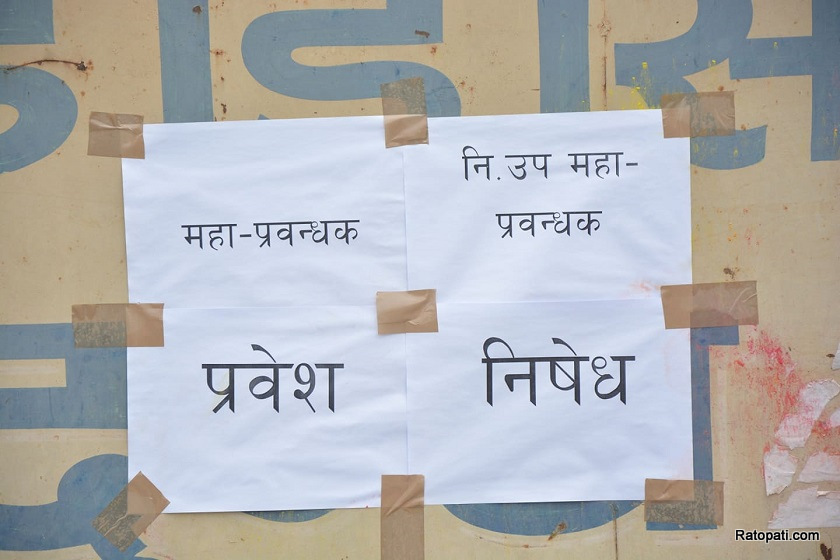 महा-प्रवन्धक
नि.उप महा-
प्रवन्धक
प्रवेश
निषेध
Ratopati.com